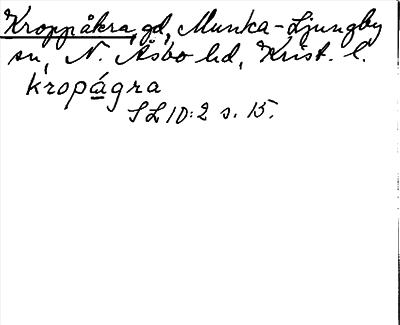 Kroppåkra, gd, Munka-Ljungby
sn, N. Åsbo hd, Krist. l.
kropágra
SL 10:2 s. 15.